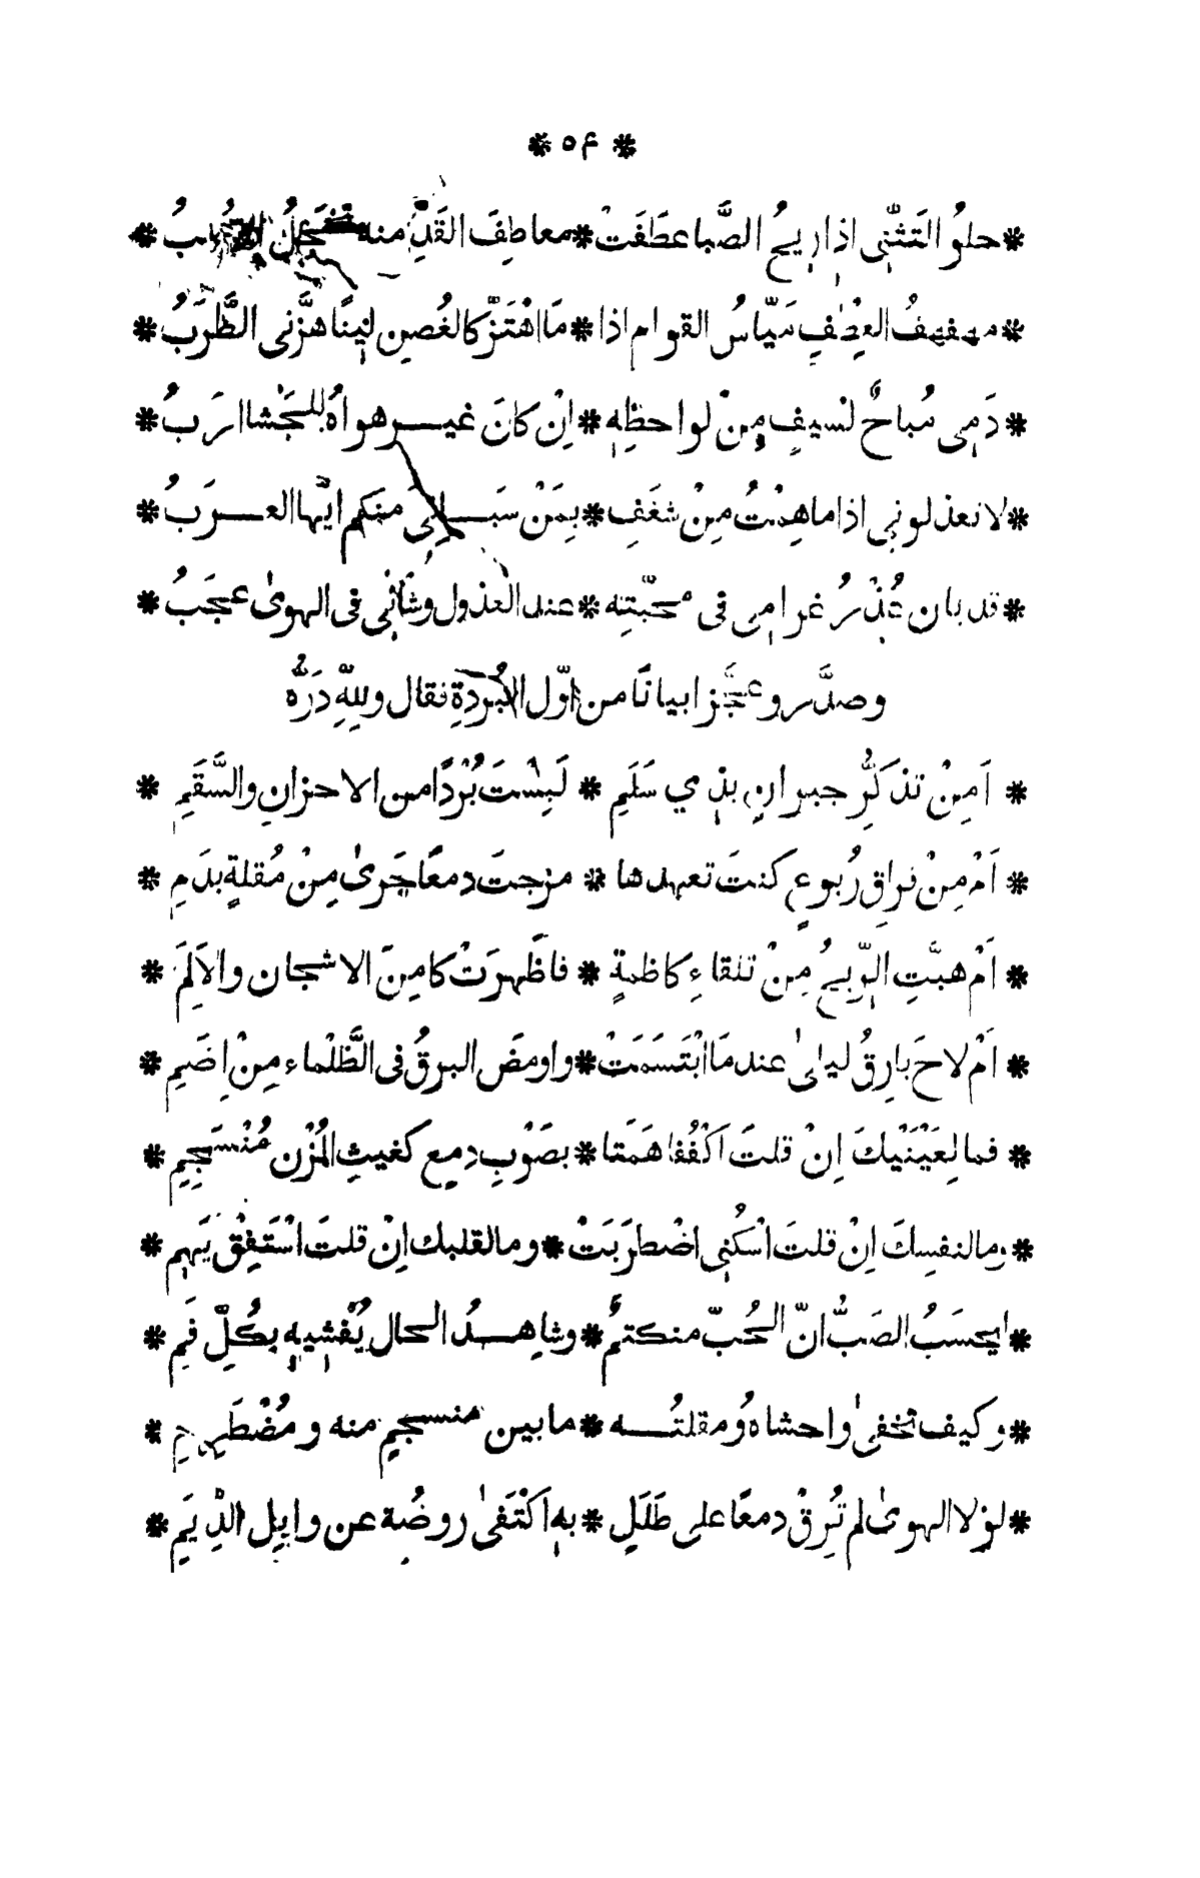 * ٥٤ *
* حلوُ التَثنّى اذا ريحُ الصَّبا عطَفَتْ * معاطِفَ القَدِّ منه
* مهفهفُ العِطْفِ مَيّاسُ القوام اذا * مَا اهْتَزَّ كالغُصنِ لينًا هزَّنى الطَّرَبُ *
* دَمِى مُباحٌ لسيفٍ مِنْ لواحظِهِ * اِنْ كانَ غيرَ هواهُ للحَشا ارَبُ *
* لا تعذلونِى اذا ما هِمْتُ مِنْ شغَفٍ * بِمَنْ سَبانِى منكم ايّها العرَبُ *
* قد بان عُذْرُ غرامِى فى محبّتِه * عند العذولِ وشأنِى فى الهوىٰ عجَبُ *
وصدَّر وعجَّز ابياتًا من اوّل البُردةِ فقال وللّهِ دَرُّه
* اَمِنْ تذكُّرِ جيرانٍ بذِي سَلَمِ * لَبِسْتَ بُرْدًا من الاحزانِ والسَّقَمِ *
* اَمْ مِنْ فراقِ رُبوعٍ كنتَ تعهدها * مزجتَ دمعًا جَرىٰ مِنْ مُقلةٍ بدَمِ *
* اَمْ هبَّتِ الرّيحُ مِنْ تلقاءِ كاظمةٍ * فاظَهرَتْ كامِنَ الاشجان والاَلَمِ *
* اَمْ لاحَ بارِقُ ليلىٰ عند مَا ابْتَسَمَتْ * واومَضَ البرقُ فى الظَّلْماء مِنْ اِضَمِ *
* فما لِعَيْنَيْكَ اِنْ قلتَ اكْفُفا هَمَتا * بصَوْبِ دمعٍ كغيثِ المُزْنِ مُنْسَجِمِ *
* وما لنفسِكَ اِنْ قلتَ اسْكُنِى اضْطرَبَتْ * وما لقلبك اِنْ قلتَ اسْتَفِقْ يَهِمِ *
* ايحسَبُ الصَبُّ انّ الحُبّ منكتمٌ * وشاهِدُ الحال يُفْشِيهِ بكُلِّ فَمِ *
* وكيف تخفىٰ واحشاهُ ومقلتُه * ما بين منسجمٍ منه ومُضْطَرِمِ *
* لوْلا الهوىٰ لم تُرِقْ دمعًا على طَلَلٍ * بهِ اكْتَفىٰ روضُه عن وابِلِ الدِّيَمِ *